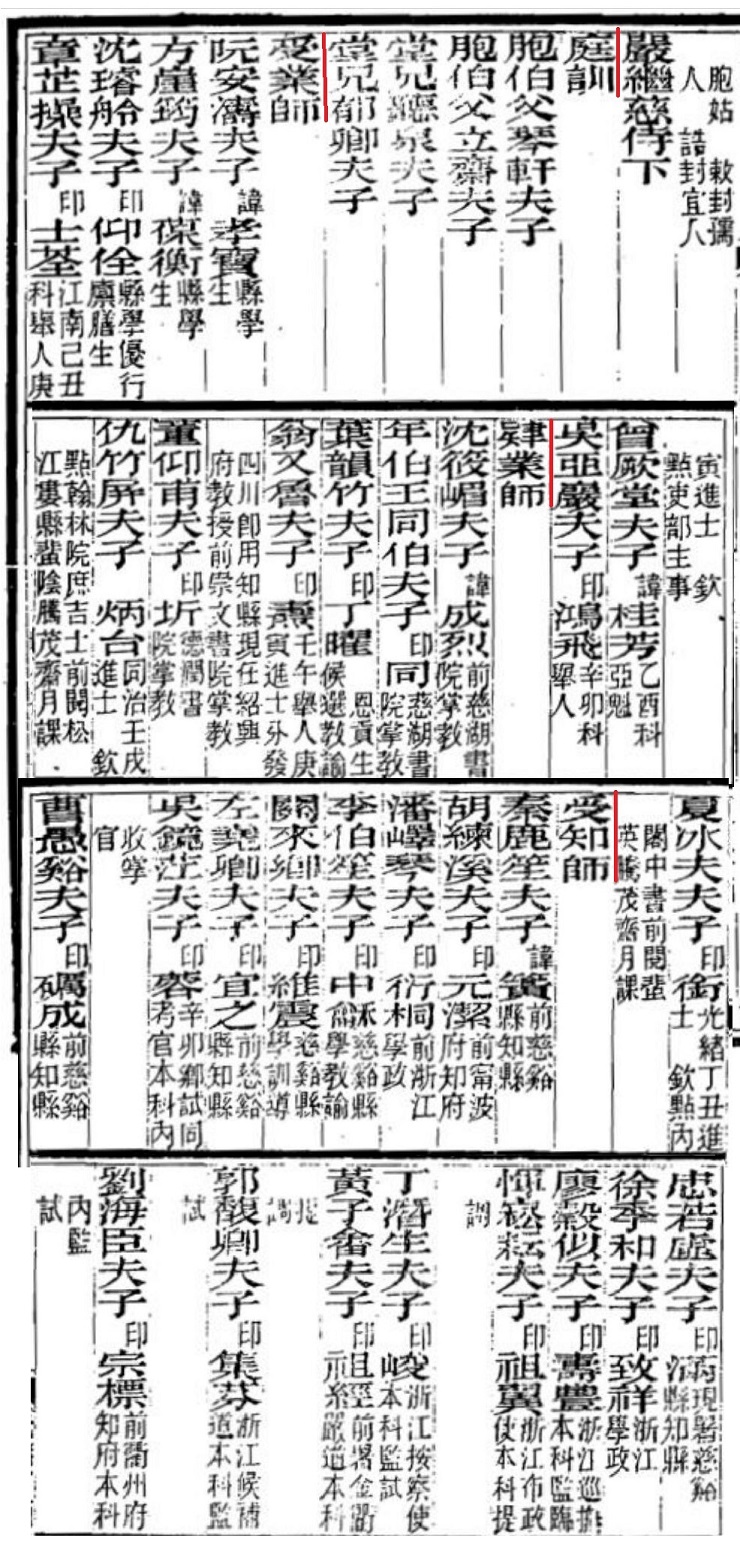 胞姑 敕封孺
人 誥封宜人
嚴繼慈侍下
庭訓
胞伯父琴軒夫子
胞伯父立齋夫子
堂兄聽泉夫子
堂兄郁卿夫子
受業師
阮安濤夫子 諱孝寶 縣學
生
方崖筠夫子 諱葆衡 縣學
生
沈璿舲夫子 印仰佺 縣學優行
廪膳生
章芷操夫子 印士荃 江南己丑
科舉人庚
寅進士 欽
點吏部主事
曾厥堂夫子 諱桂芳 乙酉科
亞魁
吳亞巖夫子 印鴻飛 辛卯科
舉人
肄業師
沈筱嵋夫子 諱成烈 前慈湖書
院掌教
年伯王同伯夫子 印同 慈湖書
院掌教
葉韻竹夫子 印丁曜 恩貢生
候選教諭
翁又魯夫子 印燾 壬午舉人庚
寅進士分發
四川即用知縣現任紹興
府教授前崇文書院掌教
董仰甫夫子 印圻 德潤書
院掌教
仇竹屏夫子 炳台 同治壬戌
進士 欽
點翰林院庶吉士前閱松
江婁縣蜚陰騰茂齋月課
夏冰夫夫子 印銜 光緒丁丑進
士 欽點內
閣中書前閱蜚
英騰茂齋月課
受知師
秦鹿笙夫子 諱簧 前慈谿
縣知縣
胡練溪夫子 印元潔 前甯波
府知府
潘嶧琴夫子 印衍桐 前浙江
學政
李伯笙夫子 印中龢 慈谿縣
學教諭
關來卿夫子 印維震 慈谿縣
學訓導
左夫子 印宜之 前慈谿
縣知縣
吳鏡夫子 印蓉 辛卯鄉試同
考官本科內
收掌
官
曹愚谿夫子 印礪成 前慈谿
縣知縣
忠若虛夫子 印 現署慈谿
縣知縣
徐季和夫子 印致祥 浙江
學政
廖穀似夫子 印壽豐 浙江巡撫
本科監臨
惲崧耘夫子 印祖翼 浙江布政
使本科提
調
丁濬生夫子 印峻 浙江按察使
本科監試
黃子畬夫子 印祖經 前署金衢
嚴道本科
提
調
郭馥卿夫子 印集芬 浙江候補
道本科監
試
劉海臣夫子 印宗標 前衢州府
知府本科
內監
試